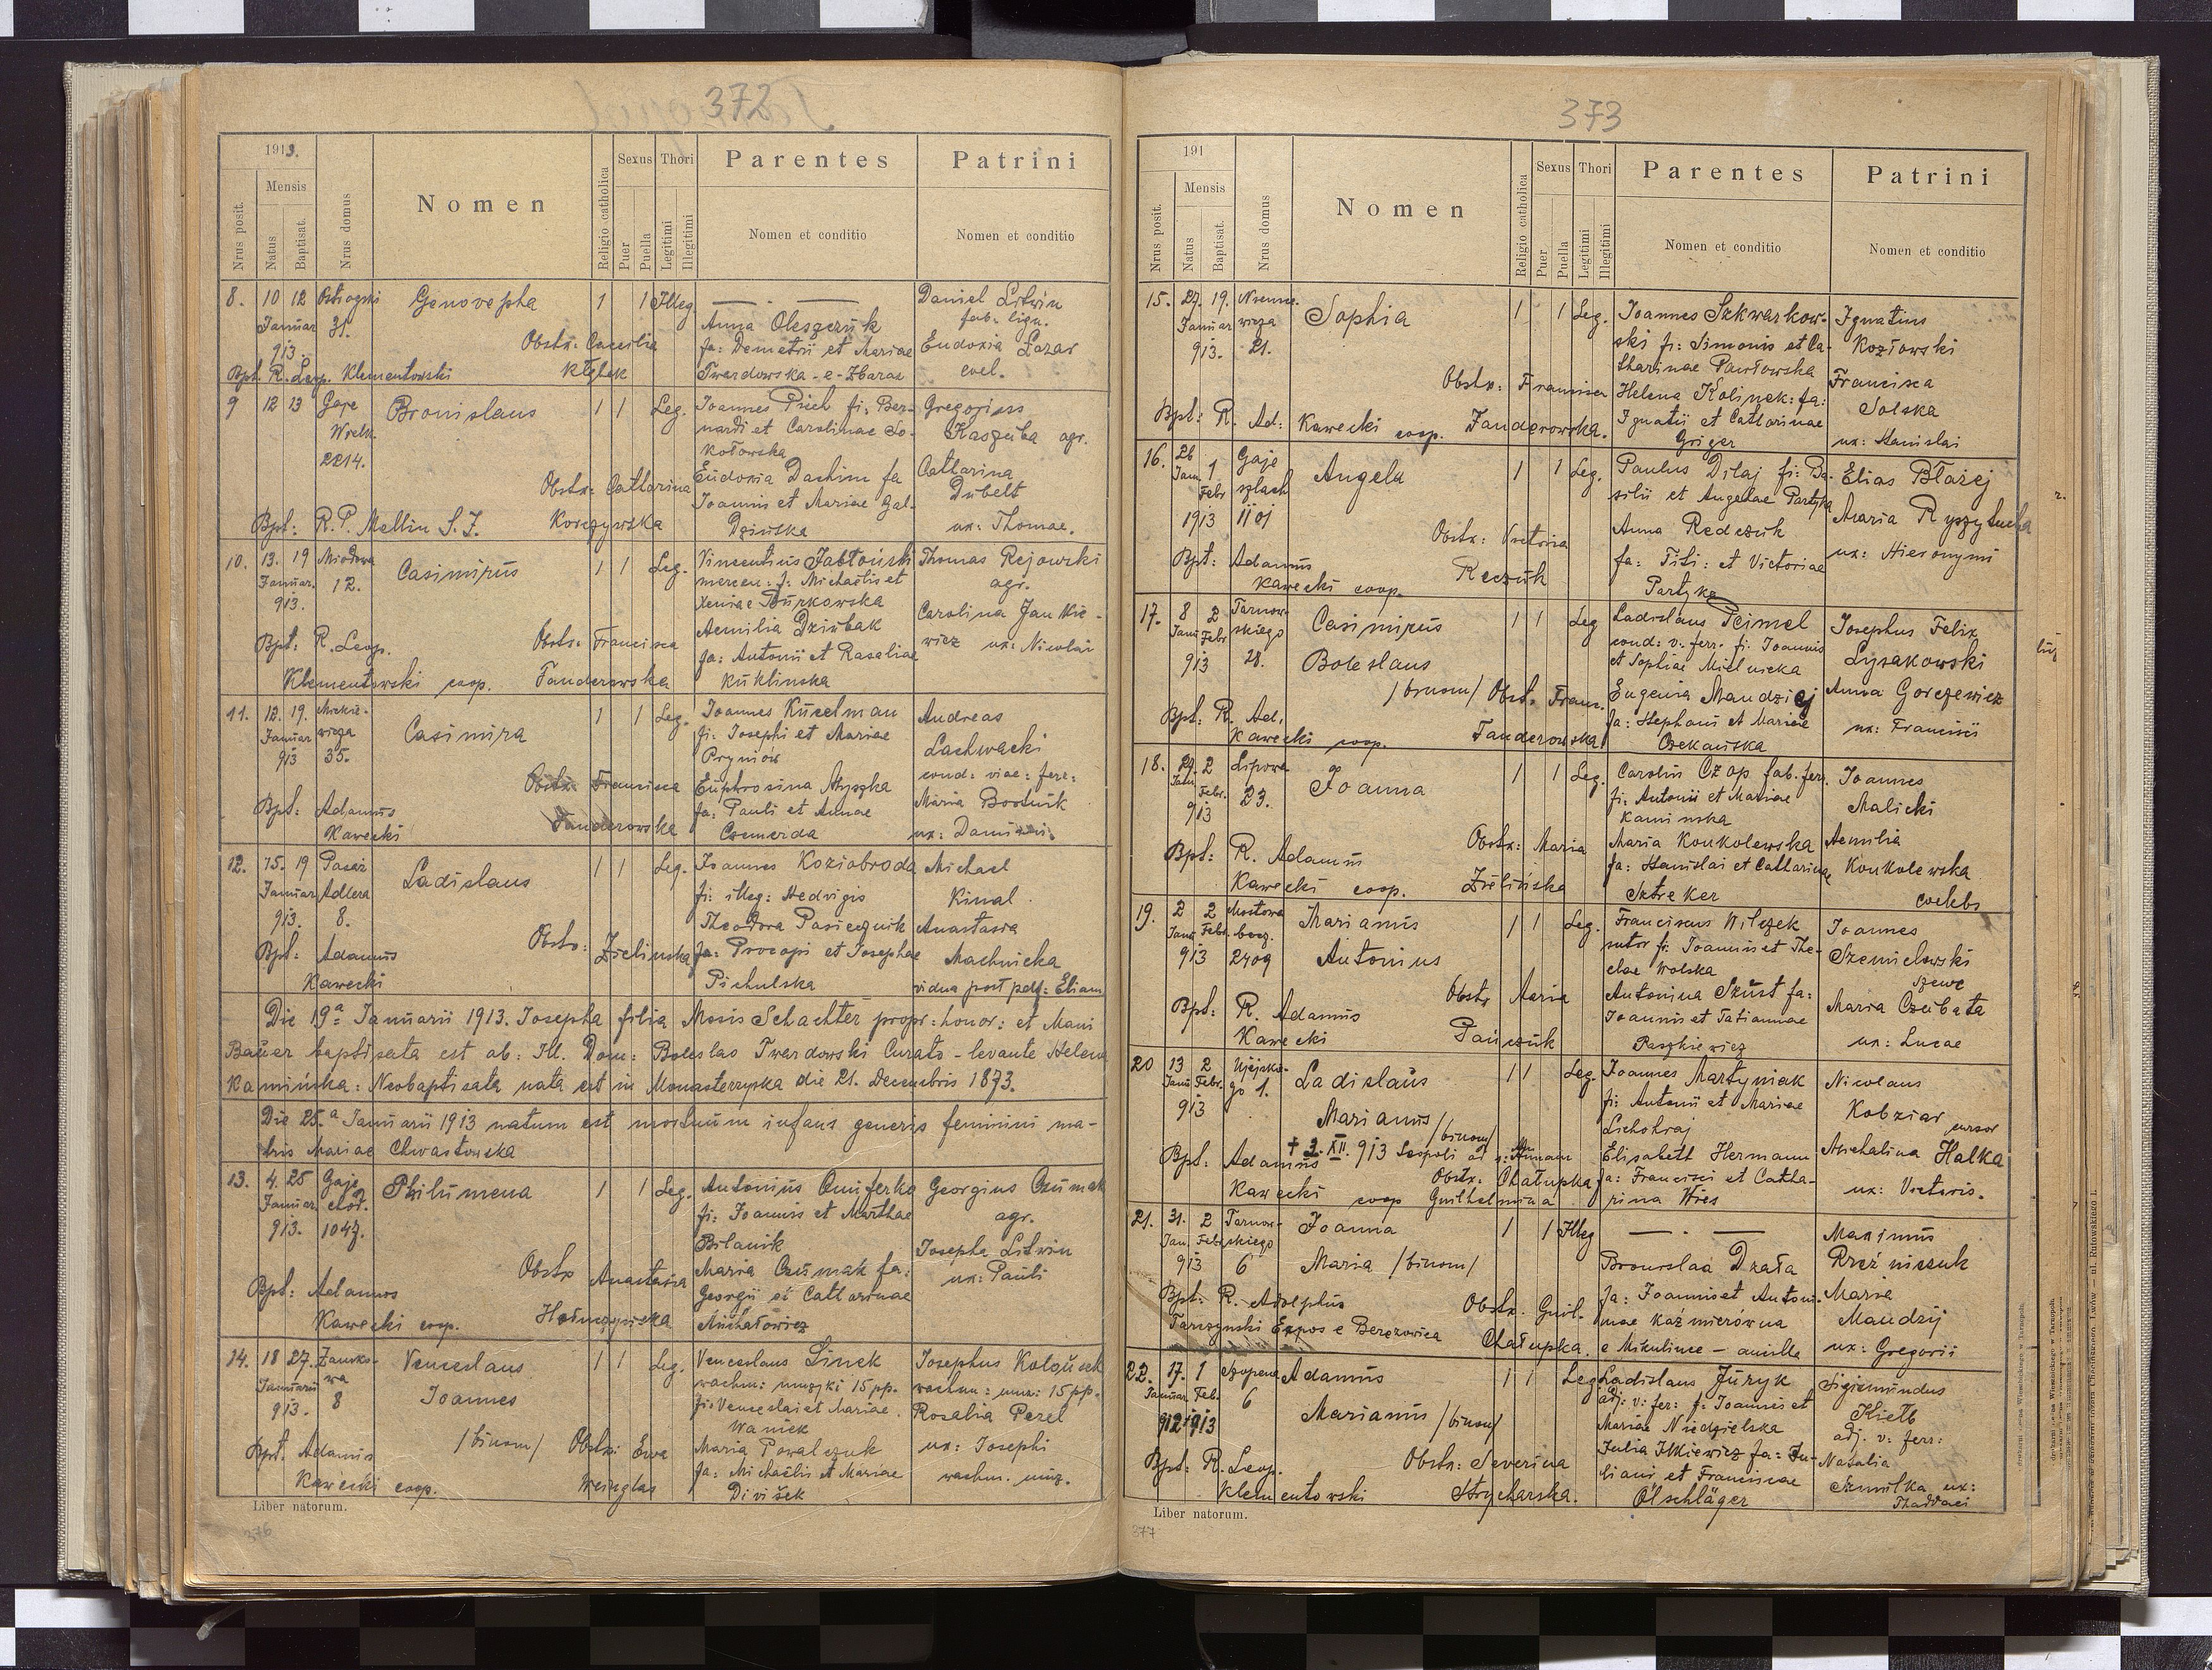 372
1913.
Mensis
Nrus posit.
Natus
Baptisat.
Nrus domus
Nomen
Religio catholica
Sexus
Puer
Puella
Thori
Legitimi
Illegitimi
Parentes
Nomen et conditio
Patrini
Nomen et conditio
8. 10 12 Ostrogski Genovepha 1 1 Illeg. Daniel Litwin
Januar 31. Anna Oleszczuk fab. lign.
913. Obstx: Caecilia fa: Demetrii et Mariae Eudoxia Lazar
Bpt. R. Leop. Klementowski Twardowska - e - Zbaraz coel.
9 12 13 Gaje Bronislaus 1 1 Leg. Joannes Piech fi: Ber- Gregorius
Wielk. nardi et Carolinae So- Kaszuba agr.
2214. kołowska
Eudoxia Dachim fa Catharina
Obstx: Catharina Joannis et Mariae Gal- Dubelt
Bpt: R. P. Mellin S. J. Korczywska Dzińska ux: Thomae.
10. 13. 19 Miodowa Casimirus 1 1 Leg. Vincentius Jabłoński Thomas Rejowski
Januar. 12. mercen: f: Michaelis et agr.
913. Xeniae Burkowska Carolina Jankie-
Aemilia Dziubak wicz ux: Nicolai
Bpt: R. Leop. Obstx: Francisca fa: Antonii et Rosaliae
Klementowski coop. Tanderowska Kuklinska
11. 12. 19. Mickie- Casimira 1 1 Leg. Joannes Kucelman Andreas
Januar wicza fi: Josephi et Mariae Lachwacki
913 35. Prymów cond: viae: ferr:
Obstx: Francisca Euphrosina Myszka Maria Bodnik
Bpt: Adamus Tanderowska fa: Pauli et Annae ux: Damiani.
Kawecki Czmerda
12. 15. 19 Pasaż Ladislaus 1 1 Leg. Joannes Koziobroda Michael
Januar Adlera fi: illeg: Hedvigis Kinal
913. 8. Theodora Pasiecznik Anastasia
Bpt: Adamus Obstx: Zielinska fa: Procopi et Josephae Machnicka
Kawecki Pichulska vidua post pdf: Eliam
Die 19ª Januarii 1913. Josepha filia Mosis Schachter propr: honor: et Mani
Bauer baptisata est ab: Ill. Dom: Boleslao Twardowski Curato - levante Helena
Kamińska: Neobaptisata nata est in Monasterzyska die 21. Decembris 1873.
Die 25.ª Januarii 1913 natum est mortuum infans generis feminini ma-
tris Mariae Chwastowska
13. 4. 25 Gaje Philumena 1 1 Leg. Antonius Onuferko Georgius Czumak
Januar. chod. fi: Joannis et Marthae agr.
913. 1047. Bilanik Josepha Litwin
Obstx Anastasia Maria Czumak fa: ux: Pauli
Bpt: Adamus Georgii et Catharinae
Kawecki coop. Michałowicz
14. 18 27. Venceslaus 1 1 Leg. Venceslaus Linek Josephus Koloušek
Januarii wachm: muzyki 15 pp. wachm: muz: 15 pp.
913. 8 Joannes fi: Venceslai et Mariae Rosalia Perel
Waniek
/binom/ Obstx: Ewa Maria Powalczuk ux: Josephi
Bpt. Adamus fa: Michaelis et Mariae wachm. muz.
Kawecki coop. Weinglas Divišek
Liber natorum.
376
373
191
Mensis
Nrus posit.
Natus
Baptisat.
Nrus domus
Nomen
Religio catholica
Sexus
Puer
Puella
Thori
Legitimi
Illegitimi
Parentes
Nomen et conditio
Patrini
Nomen et conditio
15. 27. 19. Sophia 1 1 Leg. Joannes Szkwarkow- Ignatius
Januar ski fi: Simonis et Ca- Kozłowski
913. 21. tharinae Pawłowska Francisca
Obstx: Francisca Helena Kolinek: fa: Solska
Bpt: R. Ad: Kawecki coop. Tanderowska. Ignatii et Catharinae ux: Stanislai
Griger
16. 26 1 Gaje Angela 1 1 Leg. Paulus Dilaj fi: Ba- Elias Błażej
Jan. Febr szlach silii et Angelae Partyka
1913 1101 Anna Redczuk Maria Ryszytucha
Obstx: Victoria fa: Titi: et Victoriae ux: Hieronymi
Bpt: Adamus Reczuk Partyka
Kawecki coop.
17. 8 2 Tarnow- Casimirus 1 1 Leg Ladislaus Peimel Josephus Felix
Janu Febr. skiego cond: v. ferr. fi: Joannis Lysakowski
913 28. Boleslaus et Sophiae Mielnicka
/binom/ Obstx. Franc. Eugenia Mandziej Anna Gorczewicz
Bpt: R. Ad. fa: Stephani et Mariae ux: Francisci
Kawecki coop. Tanderowska Czekańska
18. 27. 2 Lipowa Joanna 1 1 Leg. Carolus Czop fab. ferr. Joannes
Jan. Febr. 23. fi: Antonii et Mariae Malicki
913 Kaminska
Obstx: Maria Maria Koukolewska Aemilia
Bpt: R. Adamus fa: Stanislai et Catharinae Koukolewska
Kawecki coop. Zielińska Sztreker coelebs
19. 2 2 Mostowa Marianus 1 1 Leg. Franciscus Wilczek Joannes
Janu Febr. bocz. sutor fi: Joannis et The- Szemielowski
913 2409 Antonius clae Wolska szewc
Obstx Maria Antonina Szust fa: Maria Czubata
Bpt: R. Adamus Joannis et Tatiannae
Kawecki Pańczuk Paszkiewicz ux: Lucae
20 13 2 Ujejskie- Ladislaus 1 1 Leg. Joannes Martyniak Nicolaus
Janu Febr. go 1. fi: Antonii et Mariae Kobziar
913 Marianus /binom/ Lichokraj cursor
+ 2. XII. 913 Leopoli ad s: Annam Elisabeth Hermann Michalina Halka
Bpt: Adamus Obstx. Chałupka fa: Francisci et Catha- ux: Victoris.
Kawecki coop Guilhelmina rina Wies
21. 31. 2 Tarnow- Joanna 1 1 Illeg Maximus
Jan. Febr. skiego Bronislaa Dzała Rzeźniczuk
913 6 Maria /binom/
Bpt: R. Adolphus Obstx. Guil. fa: Joannis et Antoni- Maria
Tarczynski Expos e Berezovica Chałupka. nae Kaźmierówna Mandzij
e Mikulince - ancilla ux: Gregorii
22. 17. 1 Szopena Adamus 1 1 Leg Ladislaus Juryk Sigismundus
Januar Feb. 6 adj: v: fer: f: Joannis et Kiełb
912 1913 Marianus /binom/ Mariae Niedzielska adj. v: ferr:
Julia Ilkiewicz fa: Ju- Natalia
Bpt: R. Leop. Obstx: Severina liani et Franciscae Szmilka ux:
Klementowski Strycharska. Ölschläger Thaddaei
Liber natorum.
377